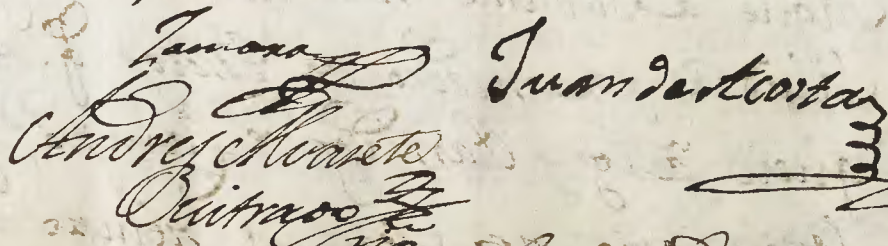 Zamora
Juan de Acosta
Andres Alvarete
Buitrago